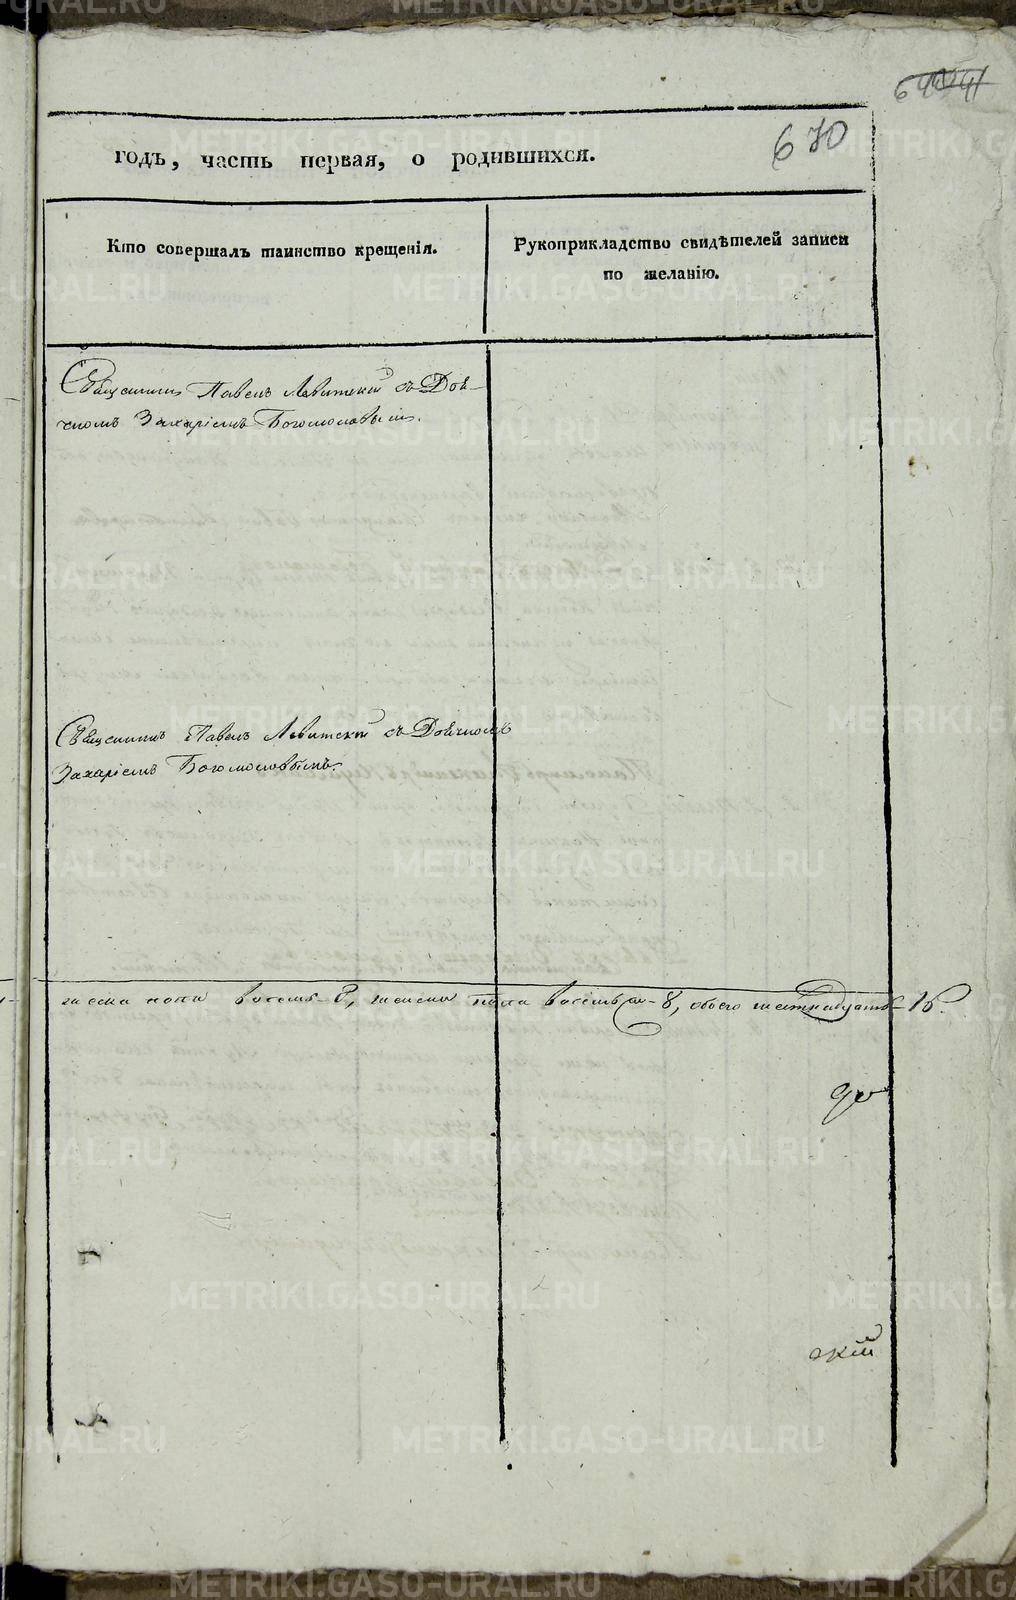 670
годъ, часть первая, о родившихся.
Кто совершалъ таинство крещенія.
Рукоприкладство свидѣтелей записи
по желанію.
Священникъ Павелъ Левитскій съ Дья-
чкомъ Захаріемъ Богомоловымъ.
Священникъ Павелъ Левитскій съ Дьячкомъ
Захаріемъ Богословымъ.
жеска пола восемь 8, женска пола восемь 8, обоего шестнадцать 16.
скій
METRIKI.GASO-URAL.RU